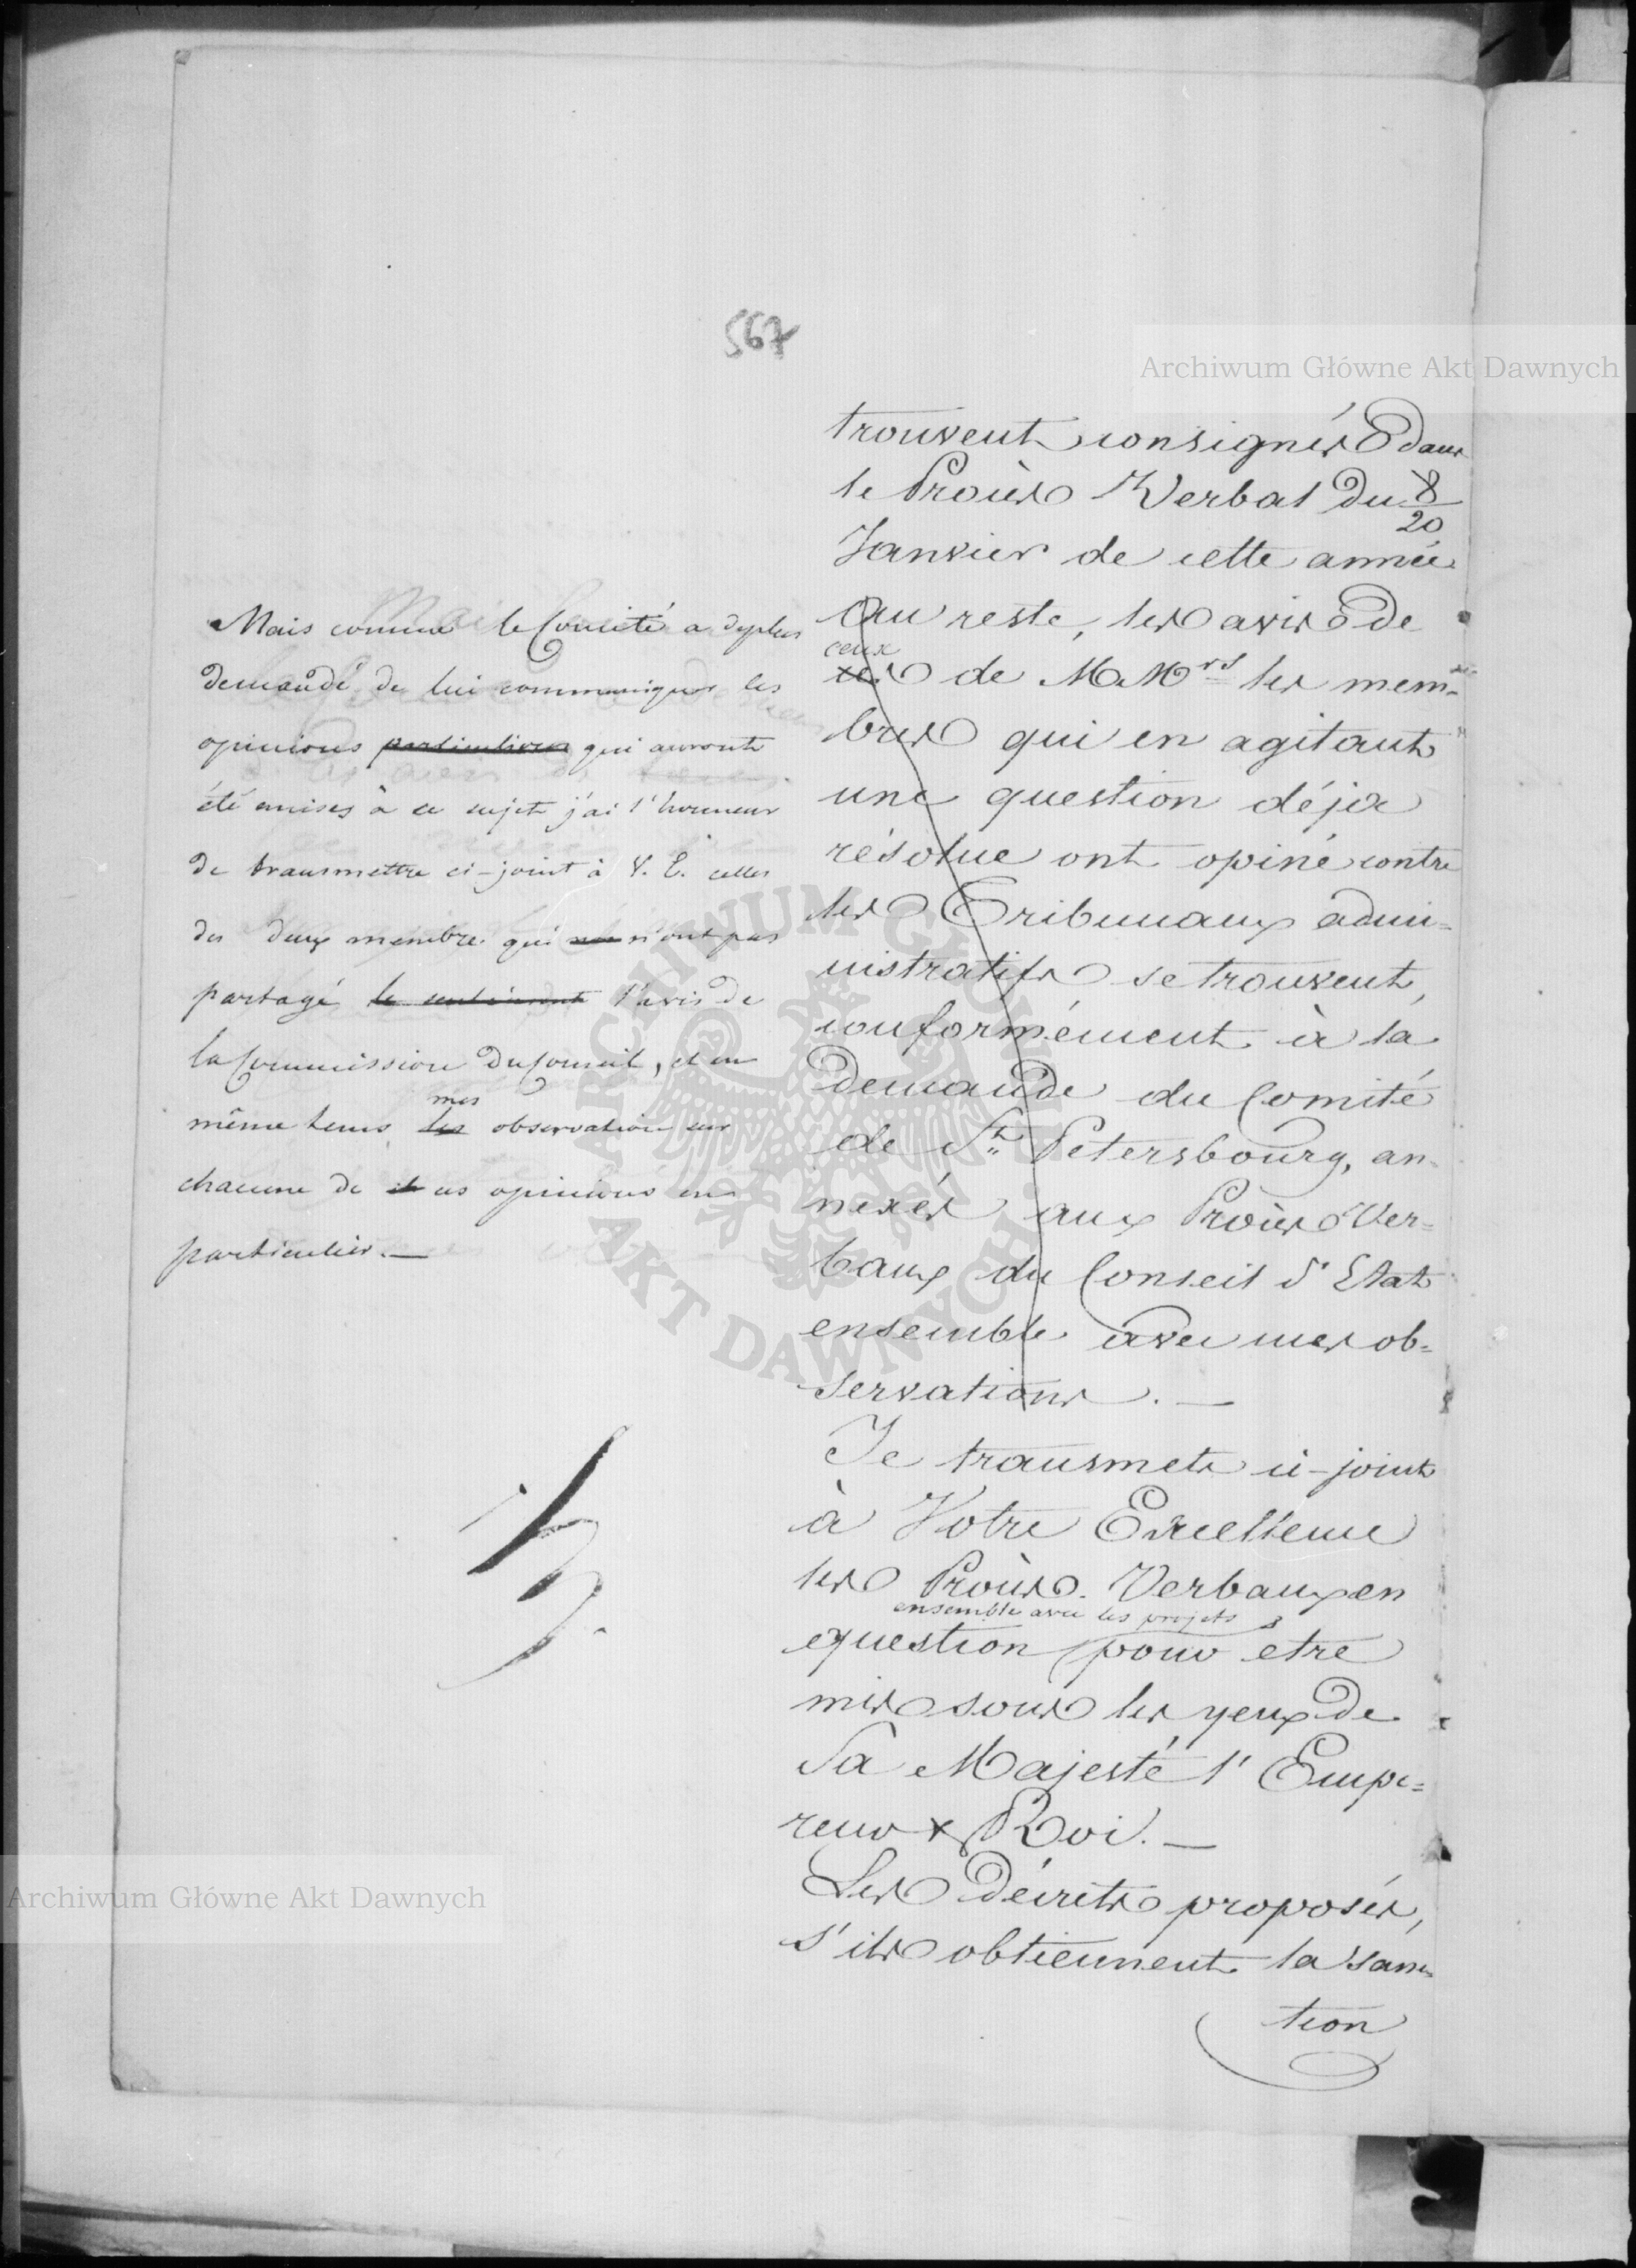 567
Archiwum Główne Akt Dawnych
trouvent consignés dans
le Procès Verbal du 8/20
Janvier de cette année
Au reste, les avis de
ceux
de MMrs les mem-
bres qui en agitant
une question déjà
résolue ont opiné contre
les Tribunaux admi-
nistratifs se trouvent,
conformément à la
demande du Comité
de St. Petersbourg, an-
nexés aux Procès Ver-
baux du Conseil d'Etat
ensemble avec mes ob-
servations. —
Je transmets ci-joint
à Votre Excellence
les Procès-Verbaux en
ensemble avec les projets
question pour etre
mis sous les yeux de
Sa Majesté l'Empe-
reur & Roi. —
Les Décrets proposés,
s'ils obtiennent la sanc-
tion
Mais comme le Comité a deplus
demandé de lui communiquer les
opinions particulières qui auront
été émises à ce sujet j'ai l'honneur
de transmettre ci-joint à V. E. celles
des deux membre qui n'ont pas
partagé le sentiment l'avis de
la Commission du Conseil, et en
mes
même tems les observation sur
chacune de ces opinions en
particulier. —
ARCHIWUM GŁÓWNE AKT DAWNYCH
Archiwum Główne Akt Dawnych